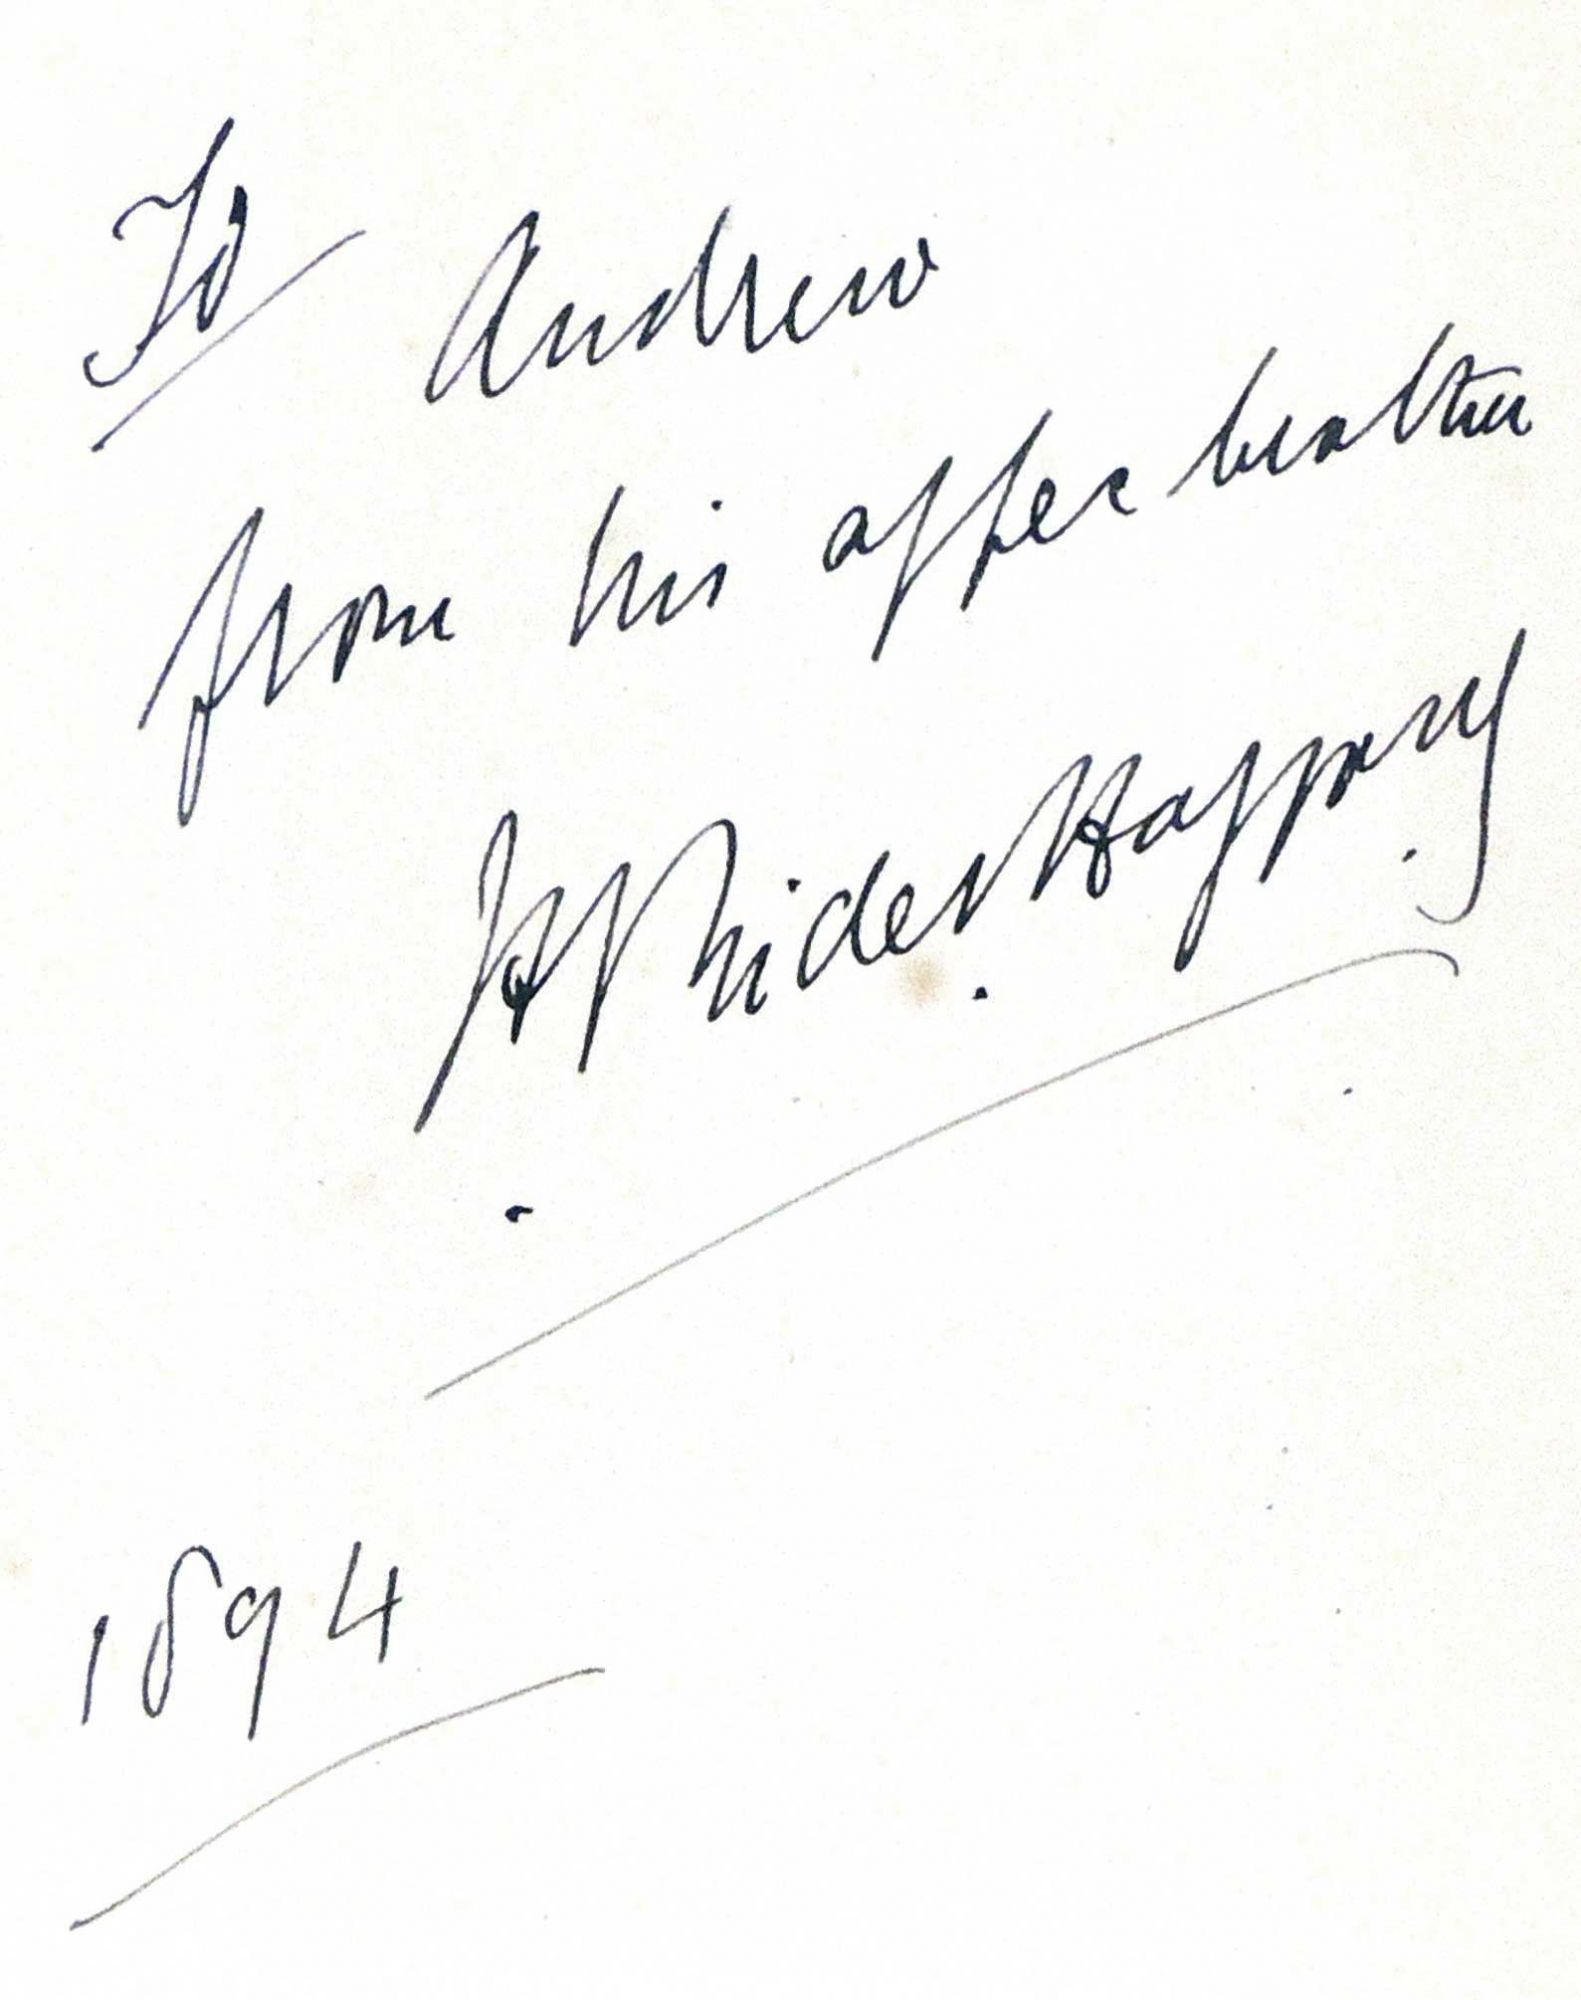 To Andrew
from his affec brother
H Rider Haggard
1894